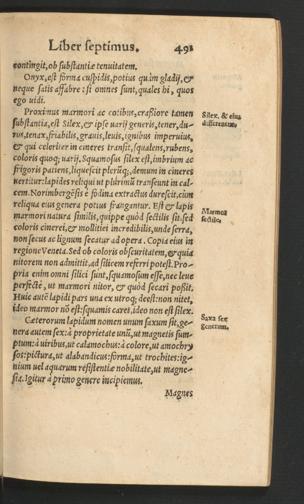 Liber septimus. 491
contingit, ob substantiæ tenuitatem.
Onyx, est forma cuspidis, potius quàm gladij, &
neque satis affabre: si omnes sunt, quales hi, quos
ego uidi.
Proximus marmori ac cotibus, crassiore tamen
substantia, est Silex, & ipse uarij generis, tener, du-
rus, tenax, friabilis, grauis, leuis, ignibus imperuius,
& qui celeriter in cineres transit, squalens, rubens,
coloris quoq; uarij. Squamosus silex est, imbrium ac
frigoris patiens, liquescit plerūq;, demum in cineres
uertitur: lapides reliqui ut plurimū transeunt in cal-
cem. Norimbergēsis è fodina extractus durescit, cùm
reliqua eius genera potius frangantur. Est & lapis
marmori natura similis, quippe quòd sectilis sit. sed
coloris cinerei, & mollitiei incredibilis, unde serra,
non secus ac lignum secatur ad opera. Copia eius in
regione Veneta. Sed ob coloris obscuritatem, & quia
nitorem non admittit, ad silicem referri potest. Pro-
pria enim omni silici sunt, squamosum esse, nec leue
perfectè, ut marmori nitor, & quòd secari possit.
Huic autē lapidi pars una ex utroq; deest: non nitet,
ideo marmor nō est: squamis caret, ideo non est silex.
Cæterorum lapidum nomen unum saxum sit. ge-
nera autem sex: à proprietate unū, ut magnetis sum-
ptum: à uiribus, ut calamochus: à colore, ut amochry
sos: pictura, ut alabandicus: forma, ut trochites: ig-
nium uel aquarum resistentiæ nobilitate, ut magne-
sia. Igitur à primo genere incipiemus.
Magnes
Silex, & eius
differentiæ.
Marmor
sectile.
Saxa sex
generum.